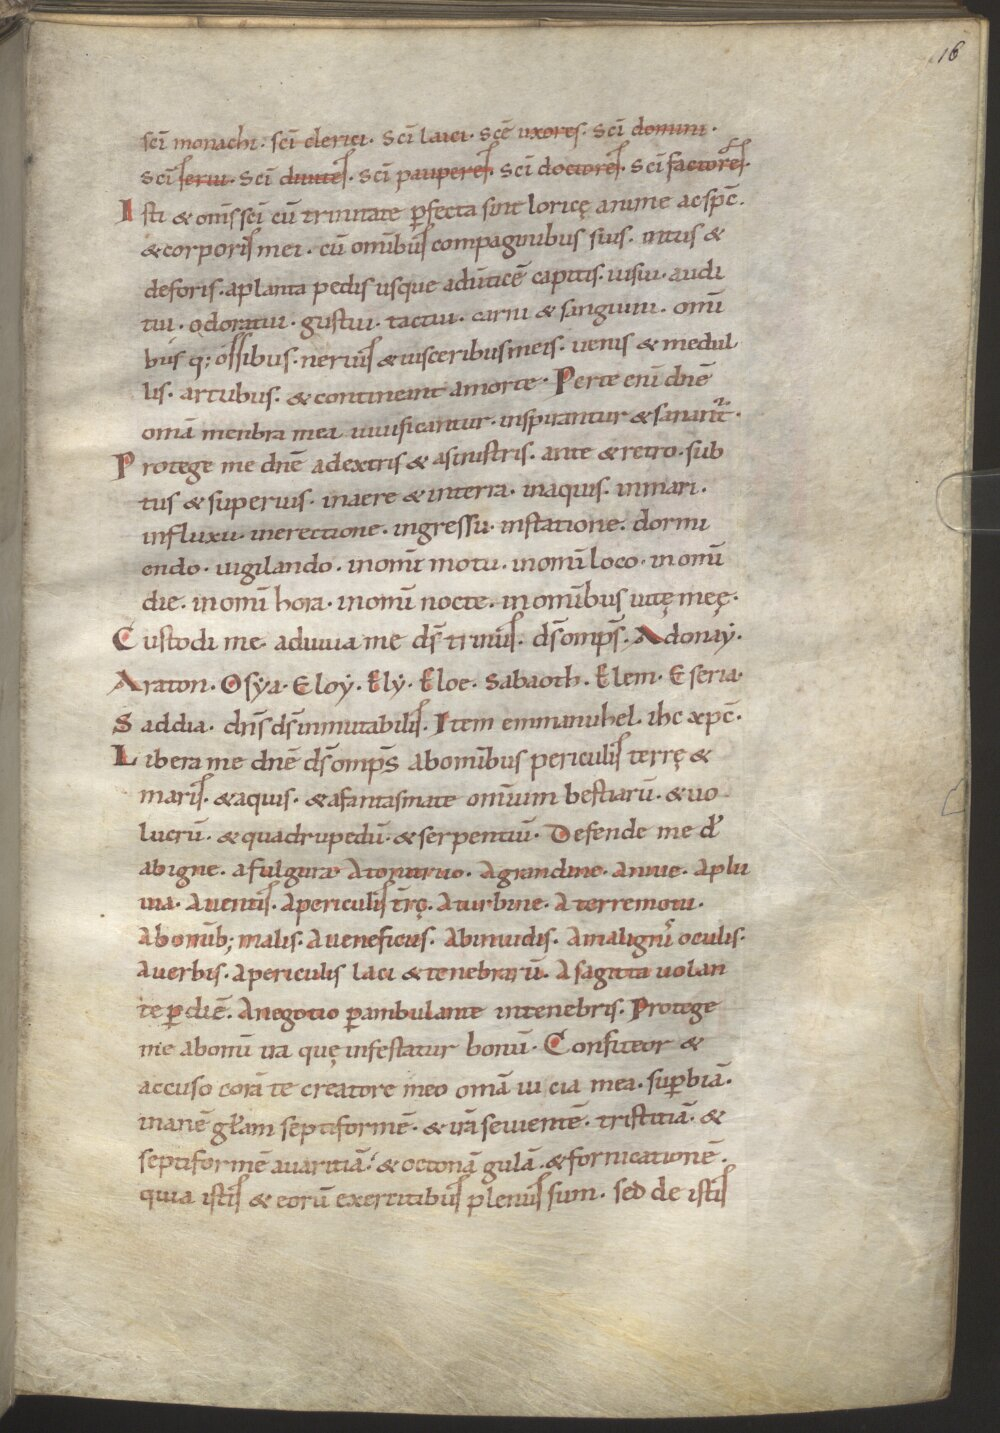 16
sc̄i monachi. sc̄i clerici. sc̄i laici. sc̄e uxores. sc̄i domini.
sc̄i serui. sc̄i diuites. sc̄i pauperes. sc̄i doctores. sc̄i factores.
Isti & om̄s sc̄i cū trinitate ꝑfecta sint loricę anime ac sp̄c.
& corporis mei. cū omībus compaginibus suis. intus &
deforis. a planta pedis usque ad uticē capitis. uisui. audi
tui. odoratui. gustui. tactui. carni & sanguini. omī
bus q; ossibus. neruis & uisceribus meis. uenis & medul
lis. artubus. & contineant amorte. Per te enī dnē
omā menbra mea uiuificantur. inspirantur & sanant᷑.
Protege me dnē adextris & asinistris. ante & retro. sub
tus & superius. in aere & interra. inaquis. inmari.
influxu. inerectione. ingressu. instatione. dormi
endo. uigilando. in omī motu. in omī loco. in omī
die. in omī hora. in omī nocte. in omībus uitę meę.
Custodi me. adiuua me d̄s trinus. d̄s omp̄s. Adonaẏ.
Araton. Osẏa. Eloẏ. Elẏ. Eloe. Sabaoth. Elem. Eseria.
Saddia. dn̄s d̄s inmutabilis. Item emmanuhel. ihc xp̄c.
Libera me dnē d̄s omp̄s abomībus periculis terrę &
maris. & aquis. & afantasmate omīum bestiarū. & uo
lucrū. & quadrupedū. & serpentiū. Defende me d̄s
abigne. a fulgura Atonitruo. Agrandine. Aniue. Aplu
uia. Auentis. Apericulis tr̄ę. Aturbine. Aterremotu.
Abomīb; malis. Aueneficiis. Abinuidis. Amalignis oculis.
Auerbis. Apericulis laci & tenebrarū. Asagitta uolan
te ꝑ diē. Anegotio ꝑambulante intenebris. Protege
me abomī ira quę infestatur bonū. Confiteor &
accuso corā te creatore meo omā uicia mea. suꝑbiā.
inanē gl̄am septiformē. & irā seuientē. tristitiā. &
septiformē auaritiā. & octonā gulā. & fornicationē.
quia istis & eorū exercitibus plenus sum. sed de istis